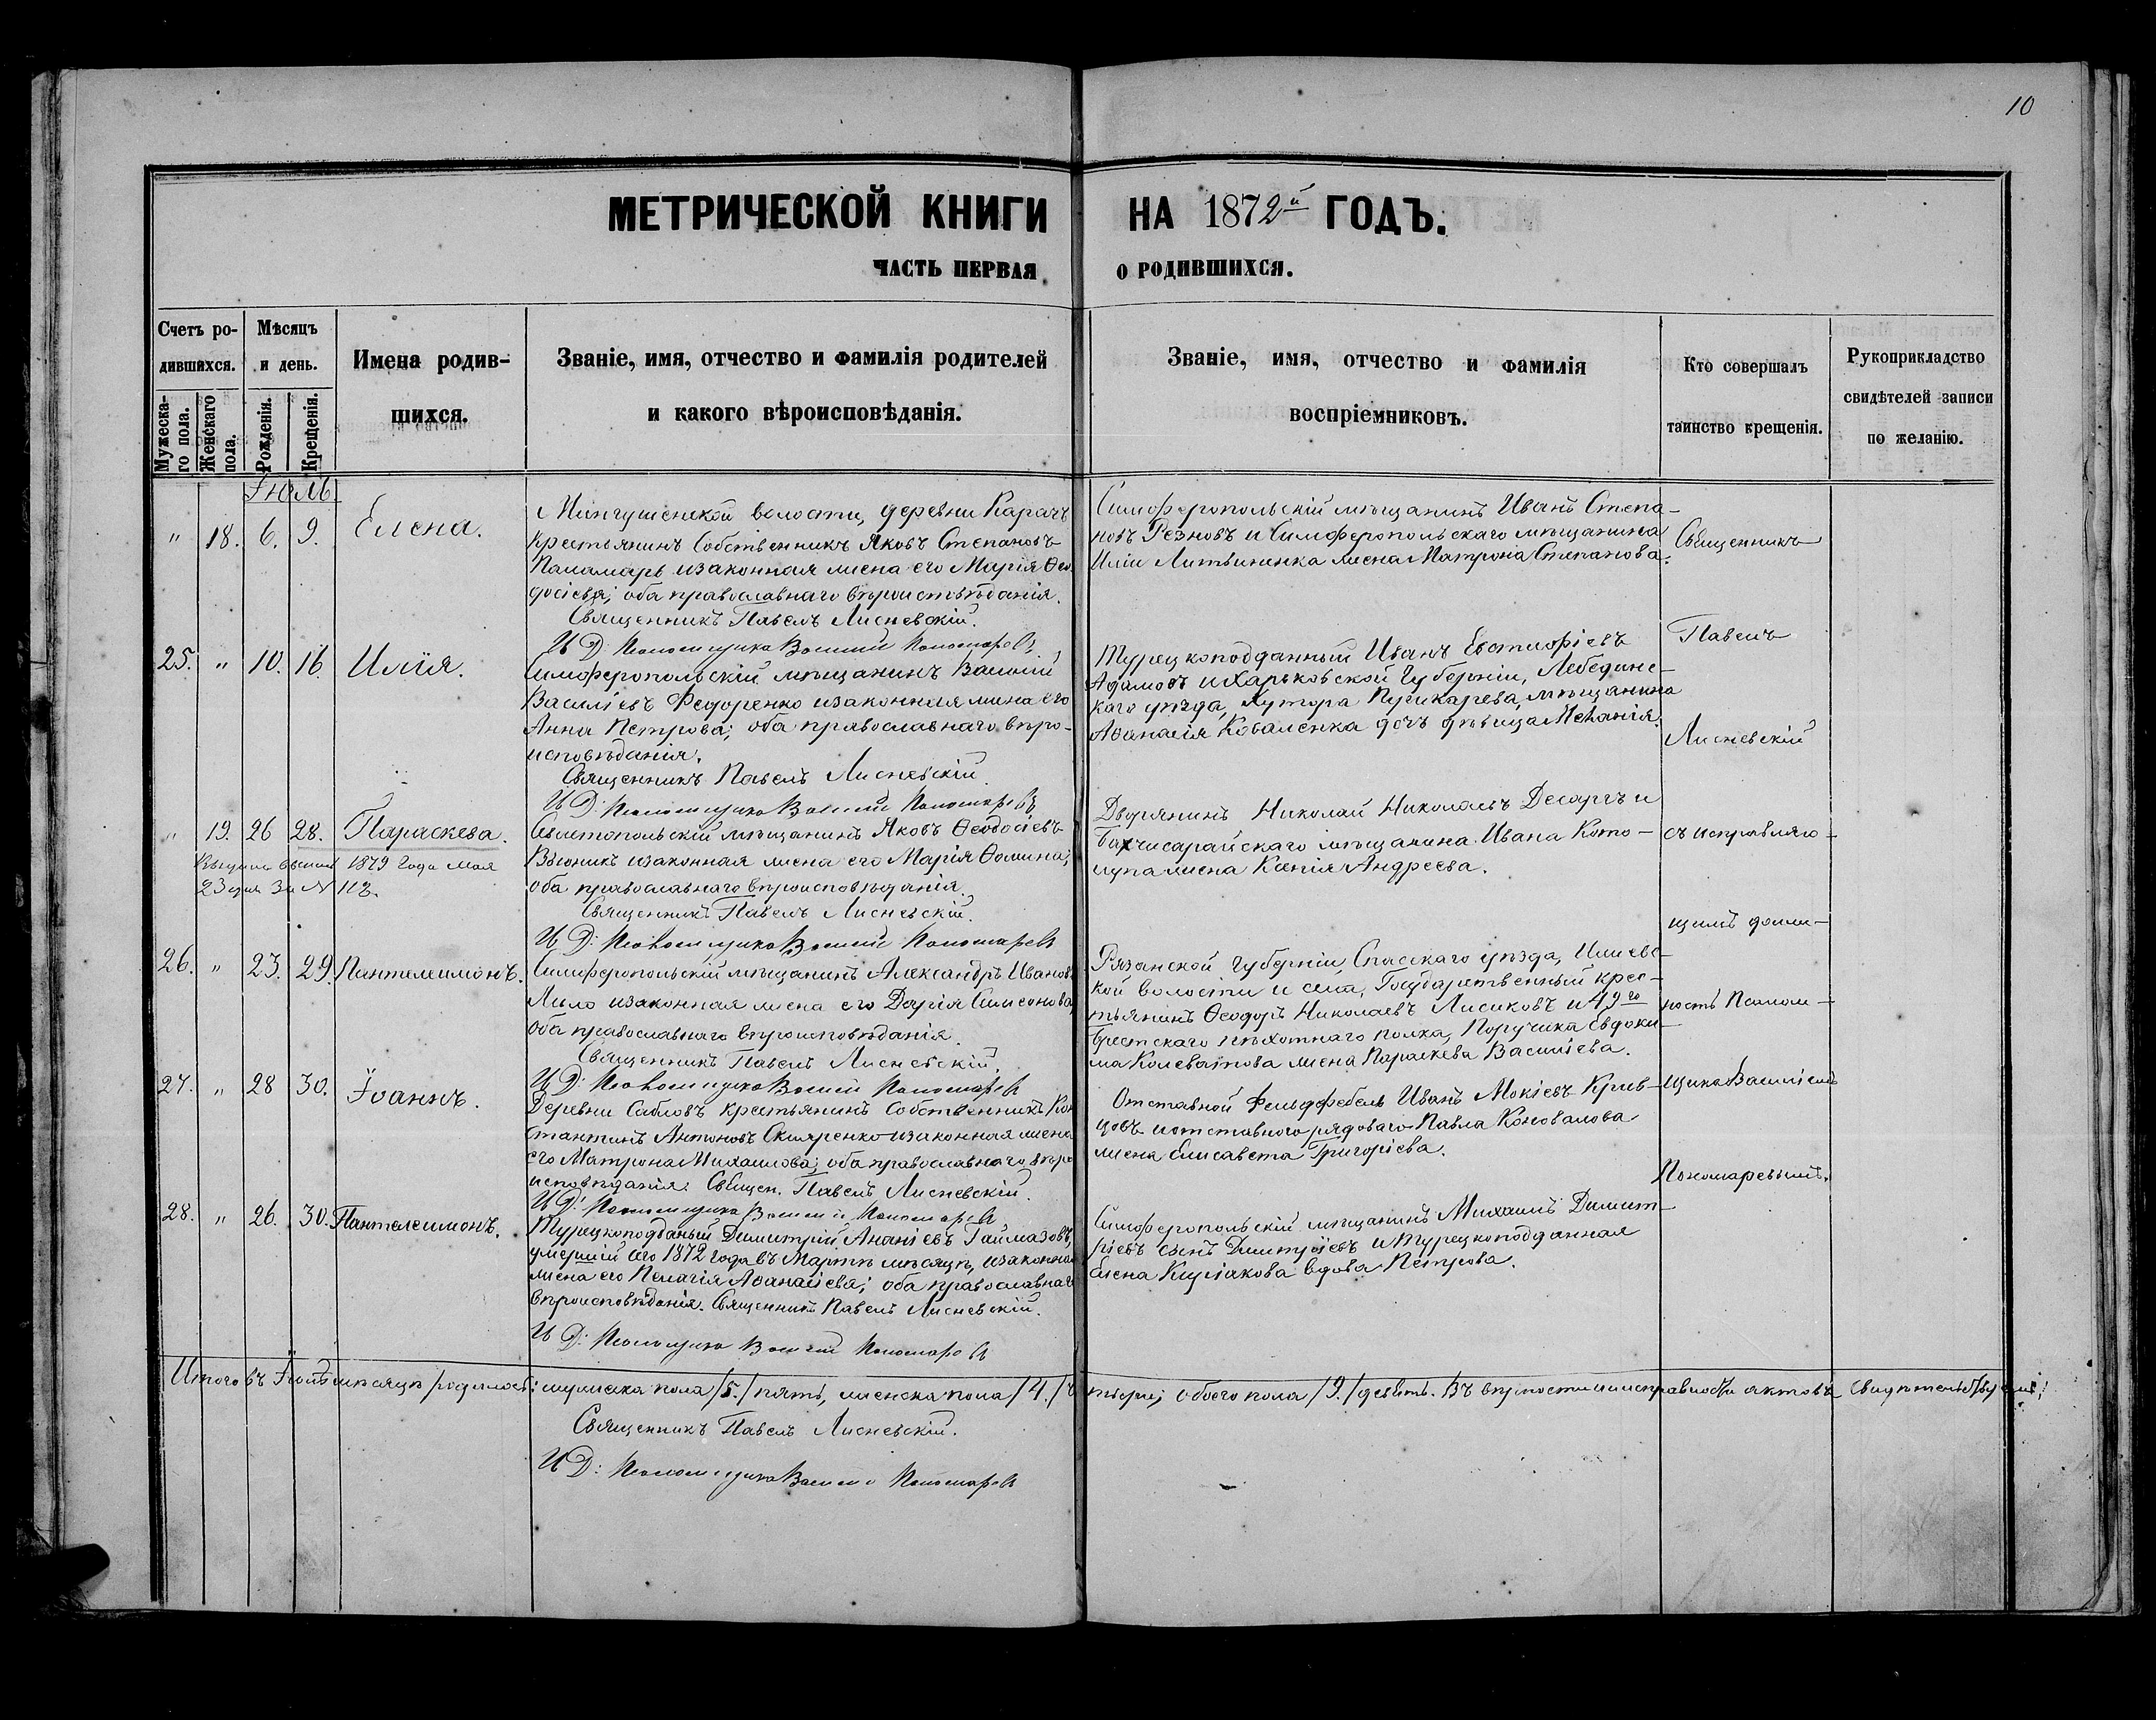 10
МЕТРИЧЕСКОЙ КНИГИ НА 1872й ГОДЪ.
ЧАСТЬ ПЕРВАЯ О РОДИВШИХСЯ.
Счетъ ро-
дившихся.
Мужеска-
го пола.
Женскаго
пола.
Мѣсяцъ
и день.
Рожденія.
Крещенія.
Имена родив-
шихся.
Званіе, имя, отчество и фамилія родителей
и какого вѣроисповѣданія.
Званіе, имя, отчество и фамилія
воспріемниковъ.
Кто совершалъ
таинство крещенія.
Рукоприкладство
свидѣтелей записи
по желанію.
Іюль
" 18. 6. 9. Елена.
волости, деревни Карачъ
Крестьянинъ Собственникъ Яковъ Степановъ
Паламарь и законная жена его Марія Ѳео-
досіева; оба православнаго вѣроисповѣданія.
Священникъ Павелъ Лисневскій.
И Д: Псаломщика Василій Пономаревъ
Симферопольскій мѣщанинъ Иванъ Степа-
новъ Резновъ и Симферопольскаго мѣщанина
Иліи Литвиненка жена Матрона Степанова.
25. " 10. 16. Илія.
Симферопольскій мѣщанинъ Василій
Васильевъ Федоренко и законная жена его
Анна Петрова; оба православнаго вѣро-
исповѣданія.
Священникъ Павелъ Лисневскій.
И Д: Псаломщика Василій Пономаревъ
Турецкоподданный Иванъ Евстафіевъ
Адамовъ и Харьковской Губерніи, Лебединс-
каго уѣзда, Хутора мѣщанина
Аѳанасія Коваленка дочь дѣвица Меланія.
" 19. 26 28. Параскева.
1879 года мая
23 дня за № 113.
Севастопольскій мѣщанинъ Яковъ Ѳеодосіевъ
Вьюникъ и законная жена его Марія Ѳомина;
оба православнаго вѣроисповѣданія.
Священникъ Павелъ Лисневскій.
И Д: Псаломщика Василій Пономаревъ
Дворянинъ Николай Николаевъ и
Бахчисарайскаго мѣщанина Ивана Кото-
жена Ксенія Андреева.
26. " 23. 29. Пантелеимонъ.
Симферопольскій мѣщанинъ Александръ Ивановъ
и законная жена его Дарія Симеонова,
оба православнаго вѣроисповѣданія.
Священникъ Павелъ Лисневскій.
И Д: Псаломщика Василій Пономаревъ
Рязанской Губерніи, Спасскаго уѣзда, Ижевс-
кой волости и села, Государственный крес-
тьянинъ Ѳеодоръ Николаевъ Лисиковъ и 49го
Брестскаго пѣхотнаго полка, Поручика Евдоки-
ма Колеватова жена Параскева Васильева.
27. " 28 30. Іоаннъ.
Деревни Сабловъ крестьянинъ Собственникъ Кон-
стантинъ Антоновъ Скляренко и законная жена
его Матрона Михаилова; оба православнаго вѣро
исповѣданія. Священ. Павелъ Лисневскій.
И Д: Псаломщика Василій Пономаревъ
Отставной Фельдфебель Иванъ Мокіевъ Крив-
цовъ и отставного рядоваго Павла Коновалова
жена Елисавета Григоріева.
28. " 26. 30. Пантелеимонъ.
Турецкоподданый Димитрій Ананіевъ Гаймазовъ,
умершій сего 1872 года въ Мартѣ мѣсяцѣ, и законная
жена его Пелагія Аѳанасіева; оба православнаго
вѣроисповѣданія. Священникъ Павелъ Лисневскій.
И Д: Псаломщика Василій Пономаревъ
Симферопольскій мѣщанинъ Михаилъ Димит-
ріевъ сынъ Димитріевъ и Турецкоподданная
Елена Киріакова вдова Петрова.
Священникъ
Павелъ
Лисневскій
съ исправляю-
щимъ долж-
ность Псалом-
щика Василіемъ
Пономаревымъ.
Итого въ Іюлѣ мѣсяцѣ родилось: мужска пола /5./ пять, женска пола /4./ четыре; обоего пола /9./ девять. Въ вѣрности и исправности актовъ свидѣтельствуемъ;
Священникъ Павелъ Лисневскій.
И Д: Псаломщика Василій Пономаревъ